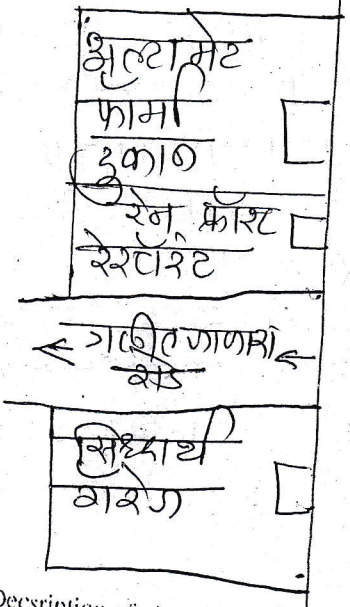 अल्टामेट
फार्मा
दुकान
रेन फ्रॉस्ट
रेस्टॉरंट
गल्लीत जाणारा
रोड
सिध्दार्थ
गॅरेज
Decsription